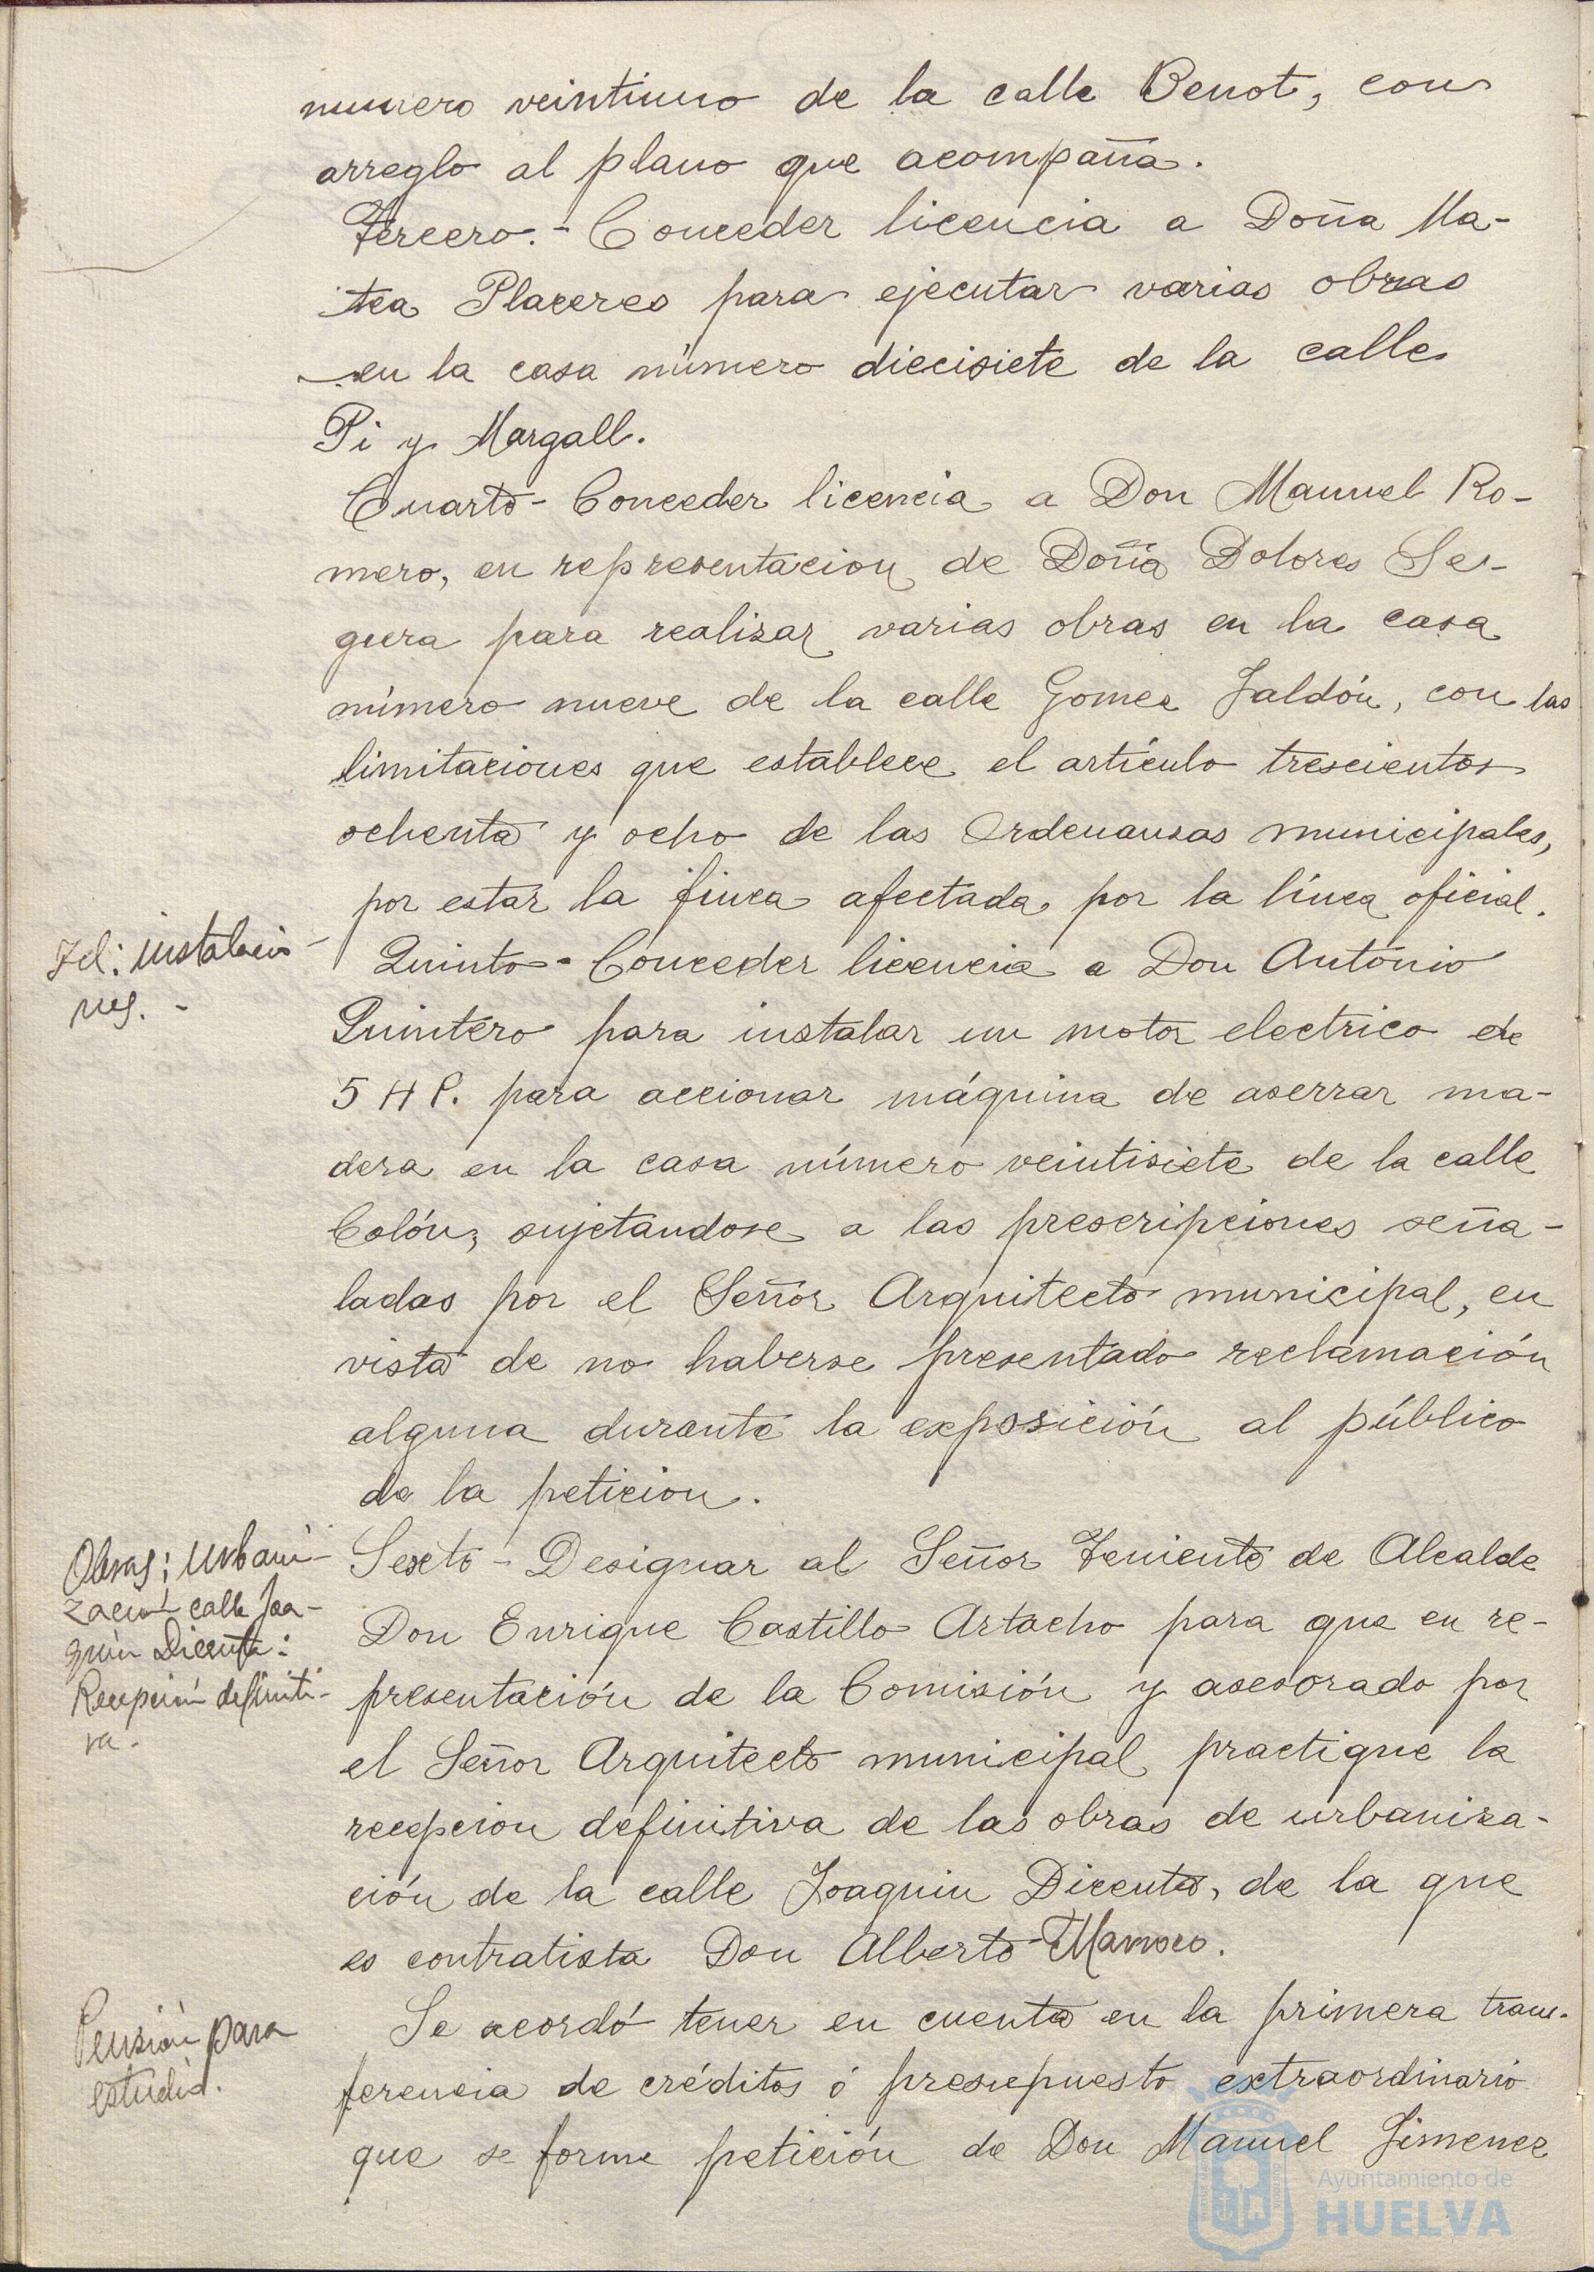 numero veintiuno de la calle Benot, con
arreglo al plano que acompaña.
Tercero.- Conceder licencia a Doña Ma-
tea Placeres para ejecutar varias obras
en la casa número diecisiete de la calle
Pi y Margall.
Cuarto- Conceder licencia a Don Manuel Ro-
mero, en representacion de Doña Dolores Se-
gura para realizar varias obras en la casa
número nueve de la calle Gomez Jaldón, con las
limitaciones que establece el artículo trescientos
ochenta y ocho de las Ordenanzas municipales,
por estar la finca afectada por la línea oficial.
Id: instalacio
nes. -
Quinto- Conceder licencia a Don Antonio
Quintero para instalar un motor electrico de
5 H P. para accionar máquina de aserrar ma-
dera en la casa número veintisiete de la calle
Colón, sujetandose a las prescripciones seña-
ladas por el Señor Arquitecto municipal, en
vista de no haberse presentado reclamación
alguna durante la exposición al público
de la peticion.
Obras; Urbani-
zación calle Joa-
quin Dicenta:
Recepción definiti-
va.
Sexto- Designar al Señor Teniente de Alcalde
Don Enrique Castillo Artacho para que en re-
presentación de la Comisión y asesorado por
el Señor Arquitecto municipal practique la
recepcion definitiva de las obras de urbaniza-
ción de la calle Joaquin Dicenta, de la que
es contratista Don Alberto
Pensión para
estudio.
Se acordó tener en cuenta en la primera trans-
ferencia de créditos ó presupuesto extraordinario
que se forme petición de Don Manuel Jimenez
Ayuntamiento de
HUELVA